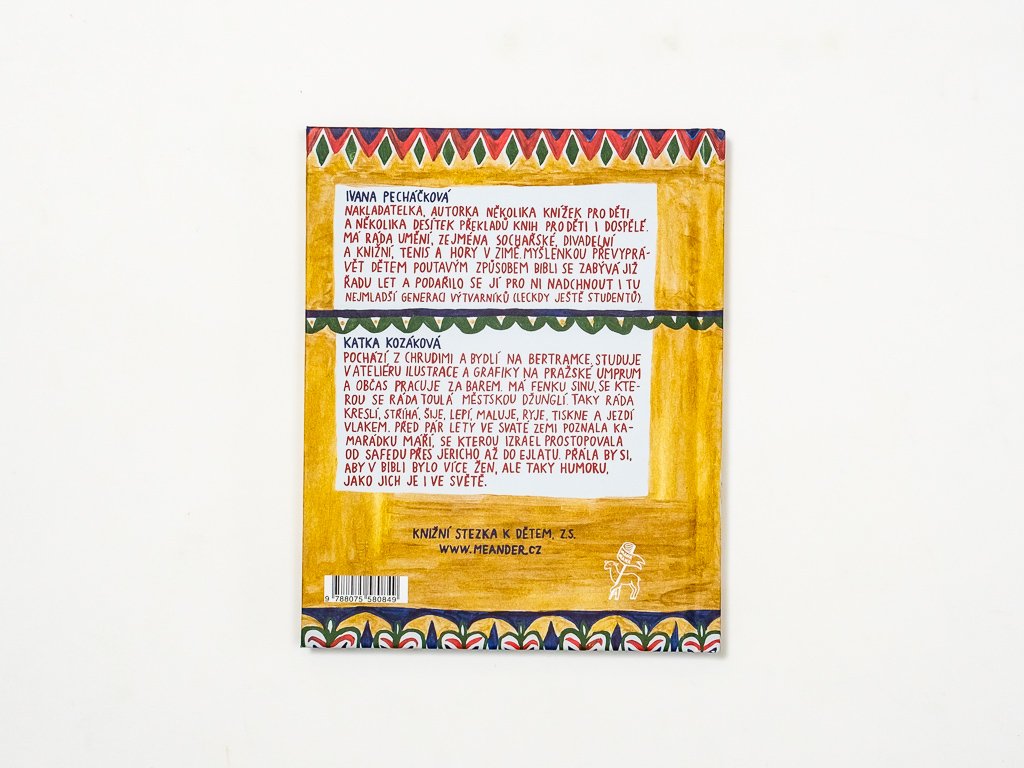 IVANA PECHÁČKOVÁ
NAKLADATELKA, AUTORKA NĚKOLIKA KNÍŽEK PRO DĚTI
A NĚKOLIKA DESÍTEK PŘEKLADŮ KNIH PRO DĚTI I DOSPĚLÉ.
MÁ RÁDA UMĚNÍ, ZEJMÉNA SOCHAŘSKÉ, DIVADELNÍ
A KNIŽNÍ, TENIS A HORY V ZIMĚ. MYŠLENKOU PŘEVYPRÁ-
VĚT DĚTEM POUTAVÝM ZPŮSOBEM BIBLI SE ZABÝVÁ JIŽ
ŘADU LET A PODAŘILO SE JÍ PRO NI NADCHNOUT I TU
NEJMLADŠÍ GENERACI VÝTVARNÍKŮ (LECKDY JEŠTĚ STUDENTŮ).
KATKA KOZÁKOVÁ
POCHÁZÍ Z CHRUDIMI A BYDLÍ NA BERTRAMCE, STUDUJE
V ATELIÉRU ILUSTRACE A GRAFIKY NA PRAŽSKÉ UMPRUM
A OBČAS PRACUJE ZA BAREM. MÁ FENKU SINU, SE KTE-
ROU SE RÁDA TOULÁ MĚSTSKOU DŽUNGLÍ. TAKY RÁDA
KRESLÍ, STŘÍHÁ, ŠIJE, LEPÍ, MALUJE, RYJE, TISKNE A JEZDÍ
VLAKEM. PŘED PÁR LETY VE SVATÉ ZEMI POZNALA KA-
MARÁDKU MAŘÍ, SE KTEROU IZRAEL PROSTOPOVALA
OD SAFEDU PŘES JERICHO AŽ DO EJLATU. PŘÁLA BY SI,
ABY V BIBLI BYLO VÍCE ŽEN, ALE TAKY HUMORU,
JAKO JICH JE I VE SVĚTĚ.
KNIŽNÍ STEZKA K DĚTEM, Z.S.
WWW.MEANDER.CZ
9 788075 580849